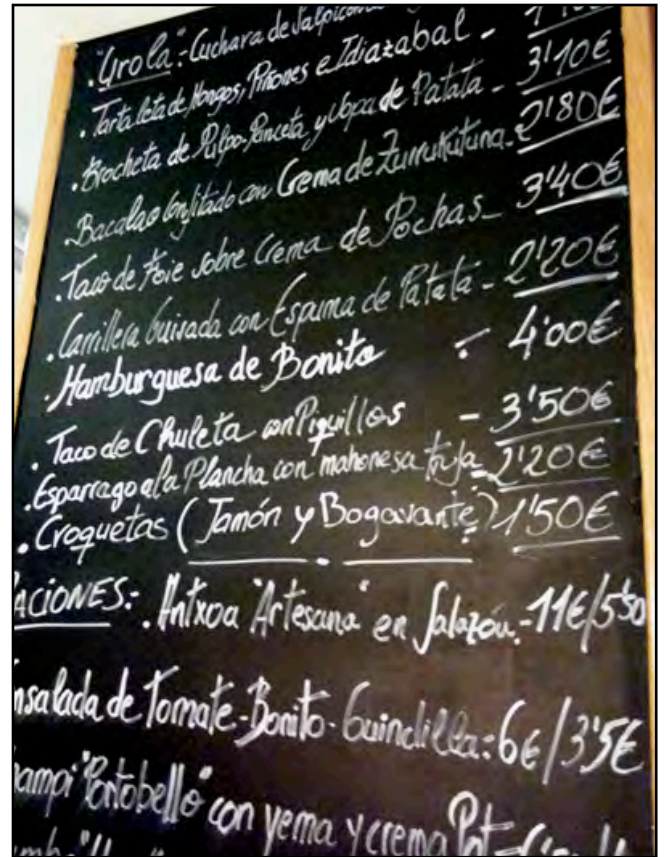 ."Grola": Cuchara de Salpicón
. Tartaleta de Hongos, Piñones e Idiazabal -
. Brocheta de Pulpo-Panceta y Copa de Patata - 3'10€
. Bacalao Confitado con Crema de Zurrukutuna - 2'80€
. Taco de Foie sobre Crema de Pochas - 3'40€
. Carrillera Guisada con Espuma de Patata - 2'20€
. Hamburguesa de Bonito - 4'00€
. Taco de Chuleta con Piquillos - 3'50€
. Esparrago a la Plancha con mahonesa trufa - 2'20€
. Croquetas (Jamón y Bogavante) 1'50€
ACIONES: . Antxoa "Artesana" en Salazón.- 11€/5'50
nsalada de Tomate-Bonito-Guindilla: 6€/3'5€
hampi "Portobello" con yema y crema Pat